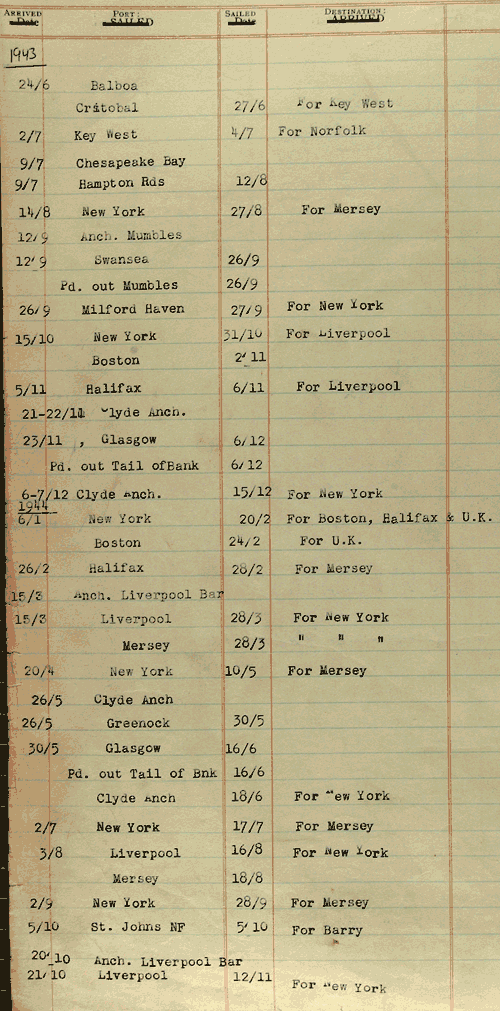 ARRIVED PORT: SAILED DESTINATION:
Date SAILED Date ARRIVED
1943
24/6 Balboa
Cristobal 27/6 For Key West
2/7 Key West 4/7 For Norfolk
9/7 Chesapeake Bay
9/7 Hampton Rds 12/8
14/8 New York 27/8 For Mersey
12/9 Anch. Mumbles
12/9 Swansea 26/9
Pd. out Mumbles 26/9
26/9 Milford Haven 27/9 For New York
15/10 New York 31/10 For Liverpool
Boston 2/11
5/11 Halifax 6/11 For Liverpool
21-22/11 Clyde Anch.
23/11 , Glasgow 6/12
Pd. out Tail ofBank 6/12
6-7/12 Clyde Anch. 15/12 For New York
1944
6/1 New York 20/2 For Boston, Halifax & U.K.
Boston 24/2 For U.K.
26/2 Halifax 28/2 For Mersey
15/3 Anch. Liverpool Bar
15/3 Liverpool 28/3 For New York
Mersey 28/3 " " "
20/4 New York 10/5 For Mersey
26/5 Clyde Anch
26/5 Greenock 30/5
30/5 Glasgow 16/6
Pd. out Tail of Bnk 16/6
Clyde Anch 18/6 For New York
2/7 New York 17/7 For Mersey
3/8 Liverpool 16/8 For New York
Mersey 18/8
2/9 New York 28/9 For Mersey
5/10 St. Johns NF 5/10 For Barry
20/10 Anch. Liverpool Bar
21/10 Liverpool 12/11 For New York